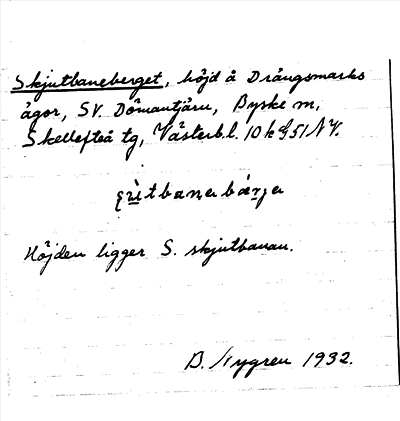 Skjutbaneberget, höjd å Drängsmarks
ägor, SV. Dömantjärn, Byske sn,
Skellefteå tg, Västerb.l.
Höjden ligger S. skjutbanan.
B. Nygren 1932.